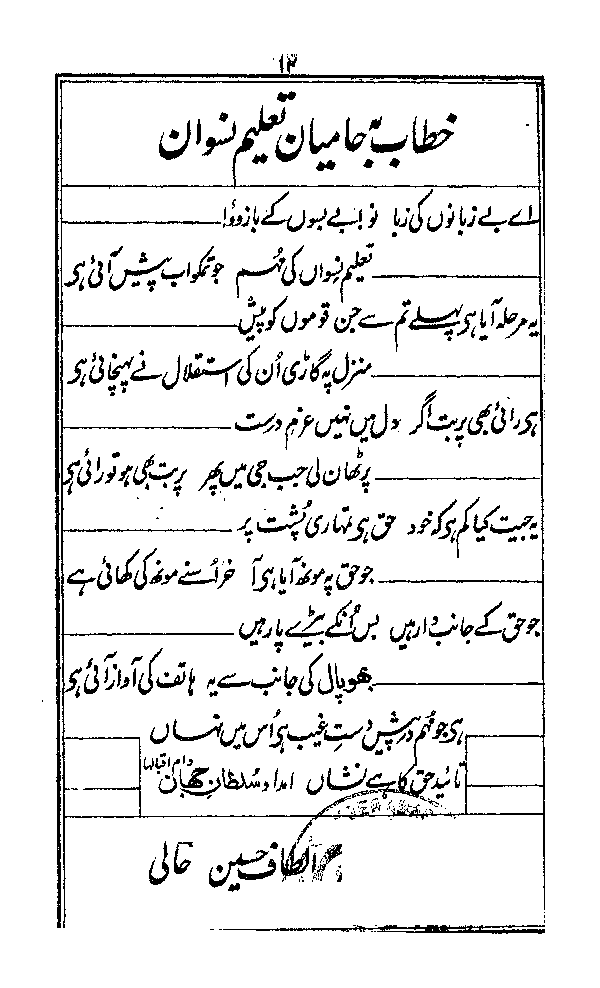 ۱۴
خطاب بہ حامیان تعلیم نسواں
اے بے زبانوں کی زبانو اے بے بسوں کے بازوؤ
تعلیم نسواں کی مُہم جو تمکو اب پیش آئی ہی
یہ مرحلہ آیا ہی پہلے تم سے جن قوموں کو پیش
منزل پہ گاڑی اُن کی استقلال نے پہنچائی ہی
ہی رائی بھی پربت اگر دل میں نہیں عزم درست
پر ٹھان لی جب جی میں پھر پربت بھی ہو تو رائی ہی
یہ جیت کیا کم ہی کہ خود حق ہی تمہاری پُشت پر
جو حق پہ مونھ آیا ہی آخر اُسنے مونھ کی کھائی ہے
جو حق کے جانب دار ہیں بس اُنکے بیڑے پار ہیں
بھوپال کی جانب سے یہ ہاتف کی آواز آئی ہی
ہی جو مُہم درپیش دستِ غیب ہی اُس میں نہاں
تائید حق کا ہے نشاں امداد سُلطانِ جہاں دام اقبالہا
الطاف حسین حالی